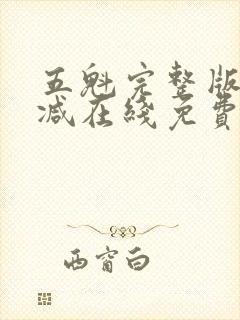 五魁完整版
减在綫免費
西窗白